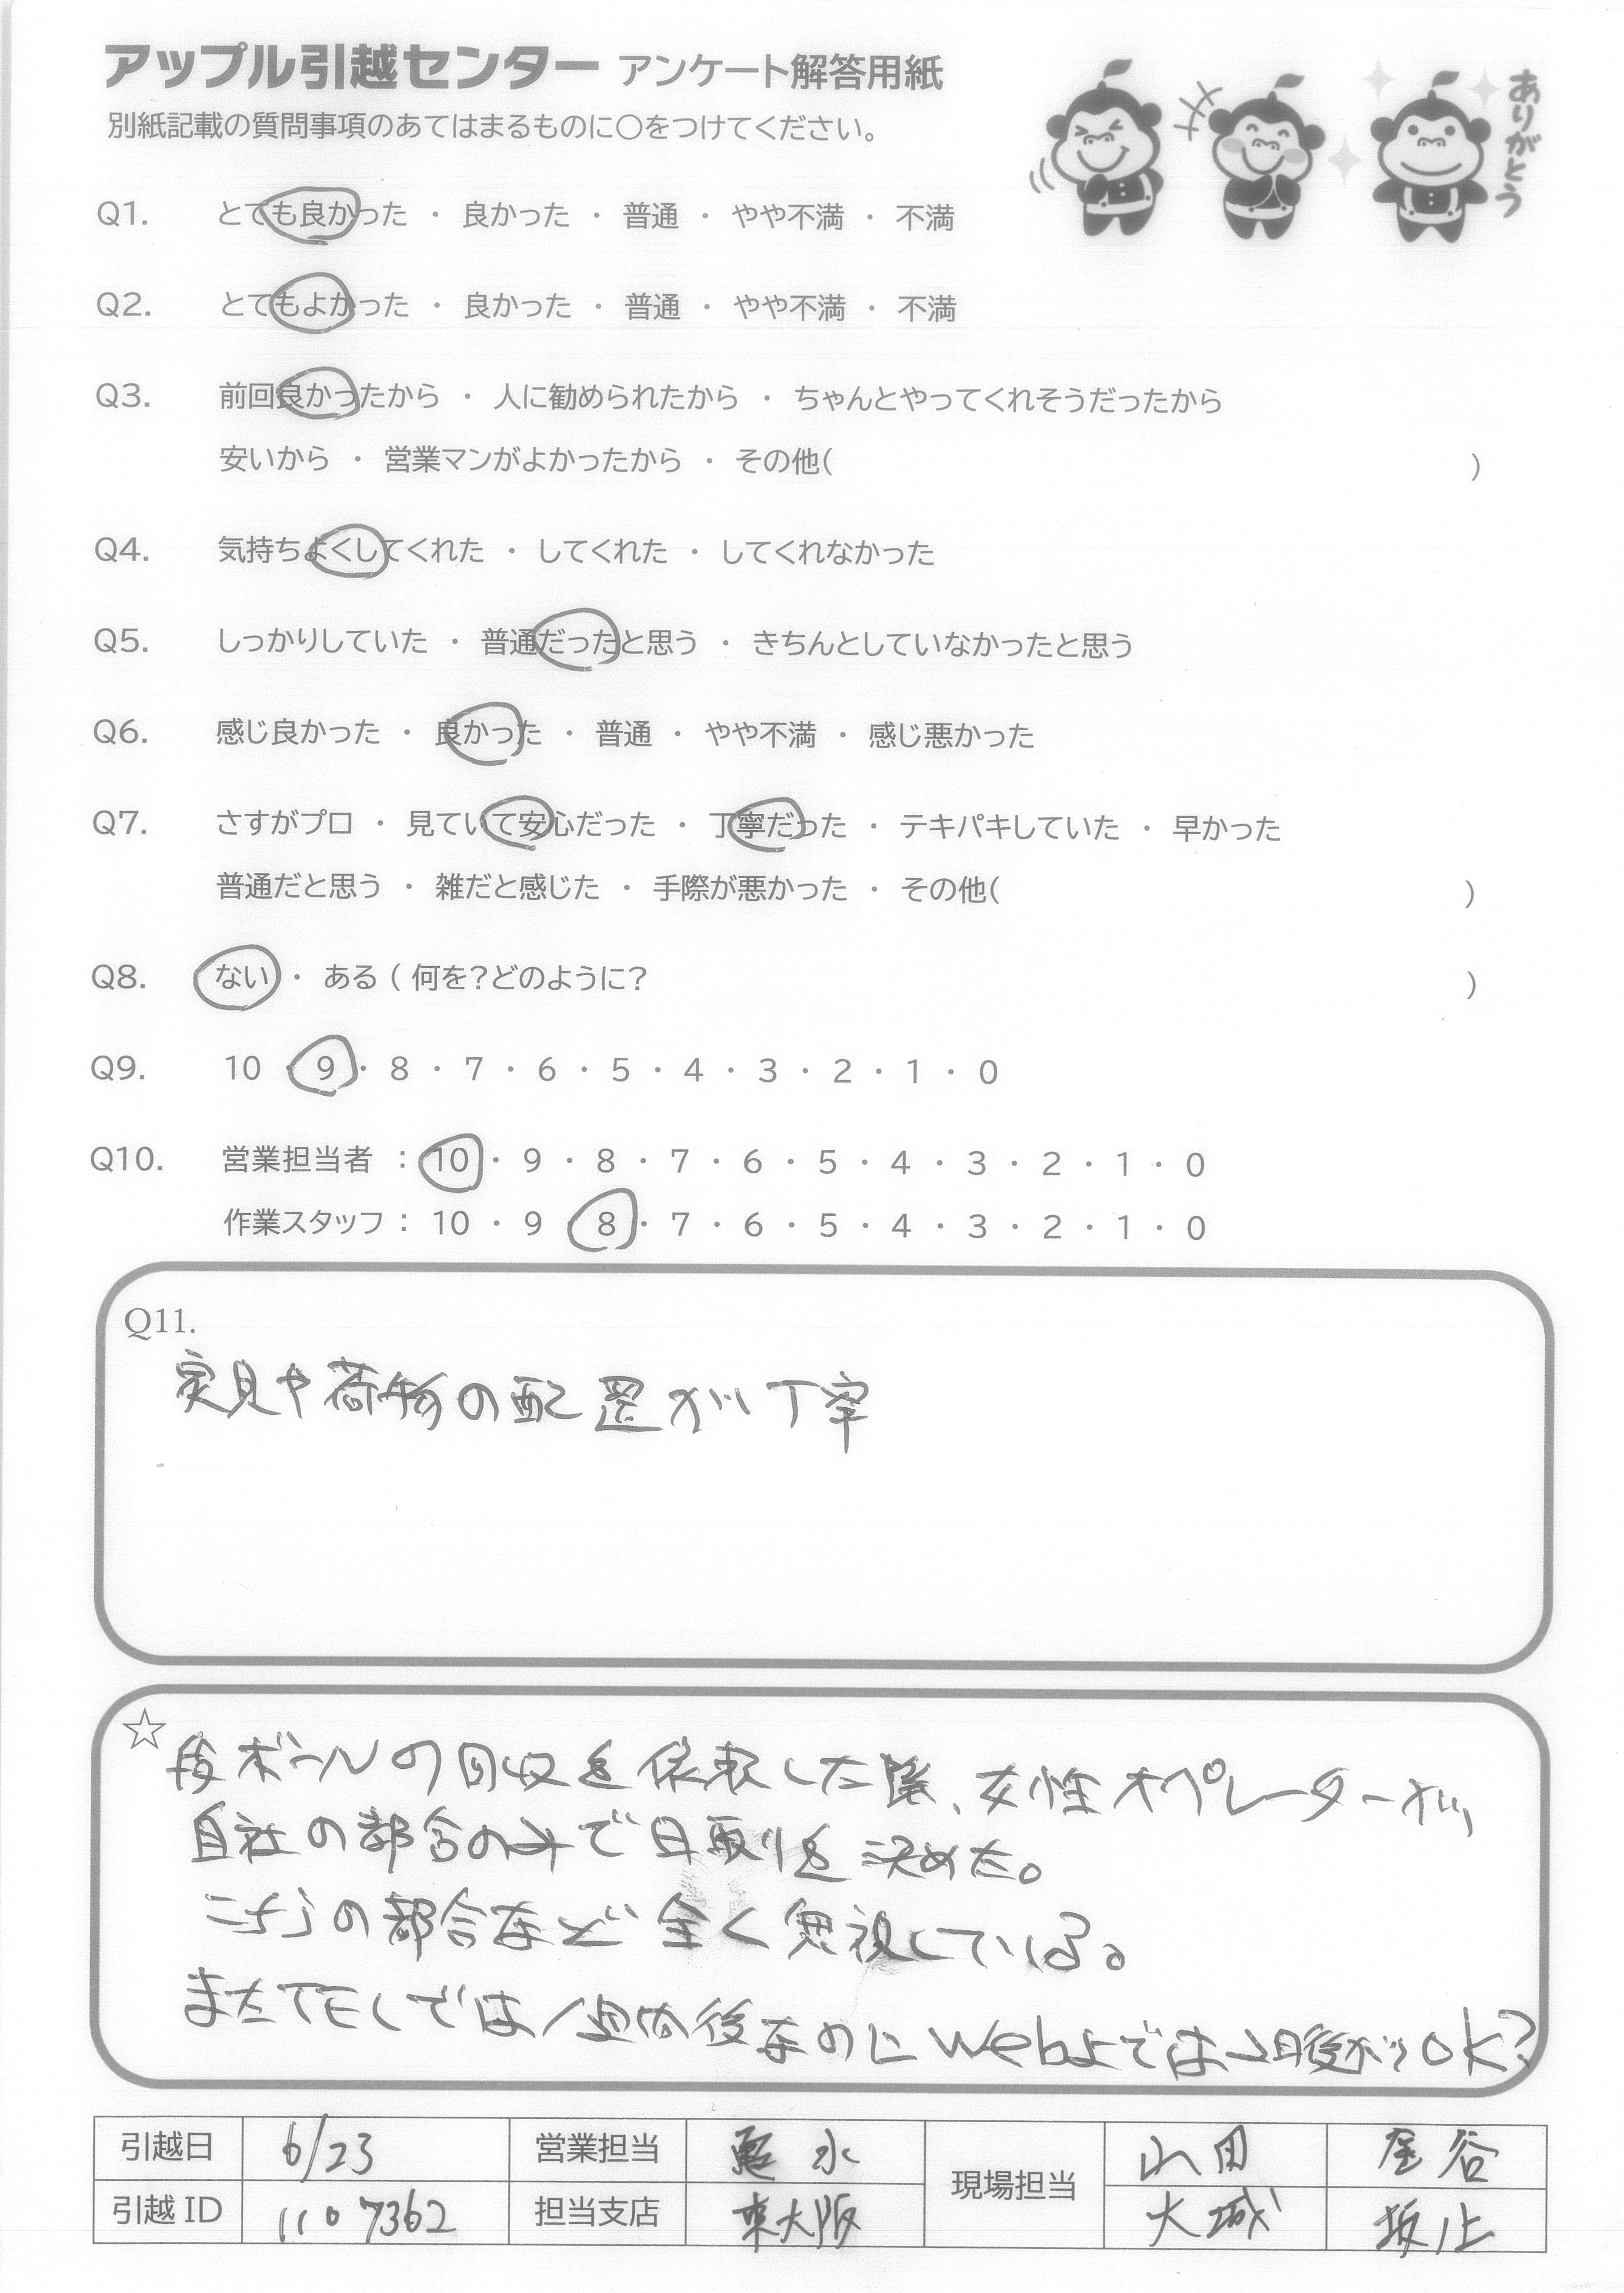 アップル引越センター アンケート解答用紙
別紙記載の質問事項のあてはまるものに○をつけてください。
ありがとう
Q1. とても良かった ・ 良かった ・ 普通 ・ やや不満 ・ 不満
Q2. とてもよかった ・ 良かった ・ 普通 ・ やや不満 ・ 不満
Q3. 前回良かったから ・ 人に勧められたから ・ ちゃんとやってくれそうだったから
安いから ・ 営業マンがよかったから ・ その他( )
Q4. 気持ちよくしてくれた ・ してくれた ・ してくれなかった
Q5. しっかりしていた ・ 普通だったと思う ・ きちんとしていなかったと思う
Q6. 感じ良かった ・ 良かった ・ 普通 ・ やや不満 ・ 感じ悪かった
Q7. さすがプロ ・ 見ていて安心だった ・ 丁寧だった ・ テキパキしていた ・ 早かった
普通だと思う ・ 雑だと感じた ・ 手際が悪かった ・ その他( )
Q8. ない ・ ある ( 何を?どのように? )
Q9. 10 ・ 9 ・ 8 ・ 7 ・ 6 ・ 5 ・ 4 ・ 3 ・ 2 ・ 1 ・ 0
Q10. 営業担当者 : 10 ・ 9 ・ 8 ・ 7 ・ 6 ・ 5 ・ 4 ・ 3 ・ 2 ・ 1 ・ 0
作業スタッフ : 10 ・ 9 ・ 8 ・ 7 ・ 6 ・ 5 ・ 4 ・ 3 ・ 2 ・ 1 ・ 0
Q11.
家具や荷物の配置が丁寧
☆段ボールの回収を依頼した際、女性オペレーターが、
自社の都合のみで日取りを決めた。
こちらの都合など全く無視している。
またTELでは1週間後なのにWeb上では2日後がOK?
引越日 6/23 営業担当 水 現場担当 山田 谷
引越ID 1107362 担当支店 東大阪 大城 坂上